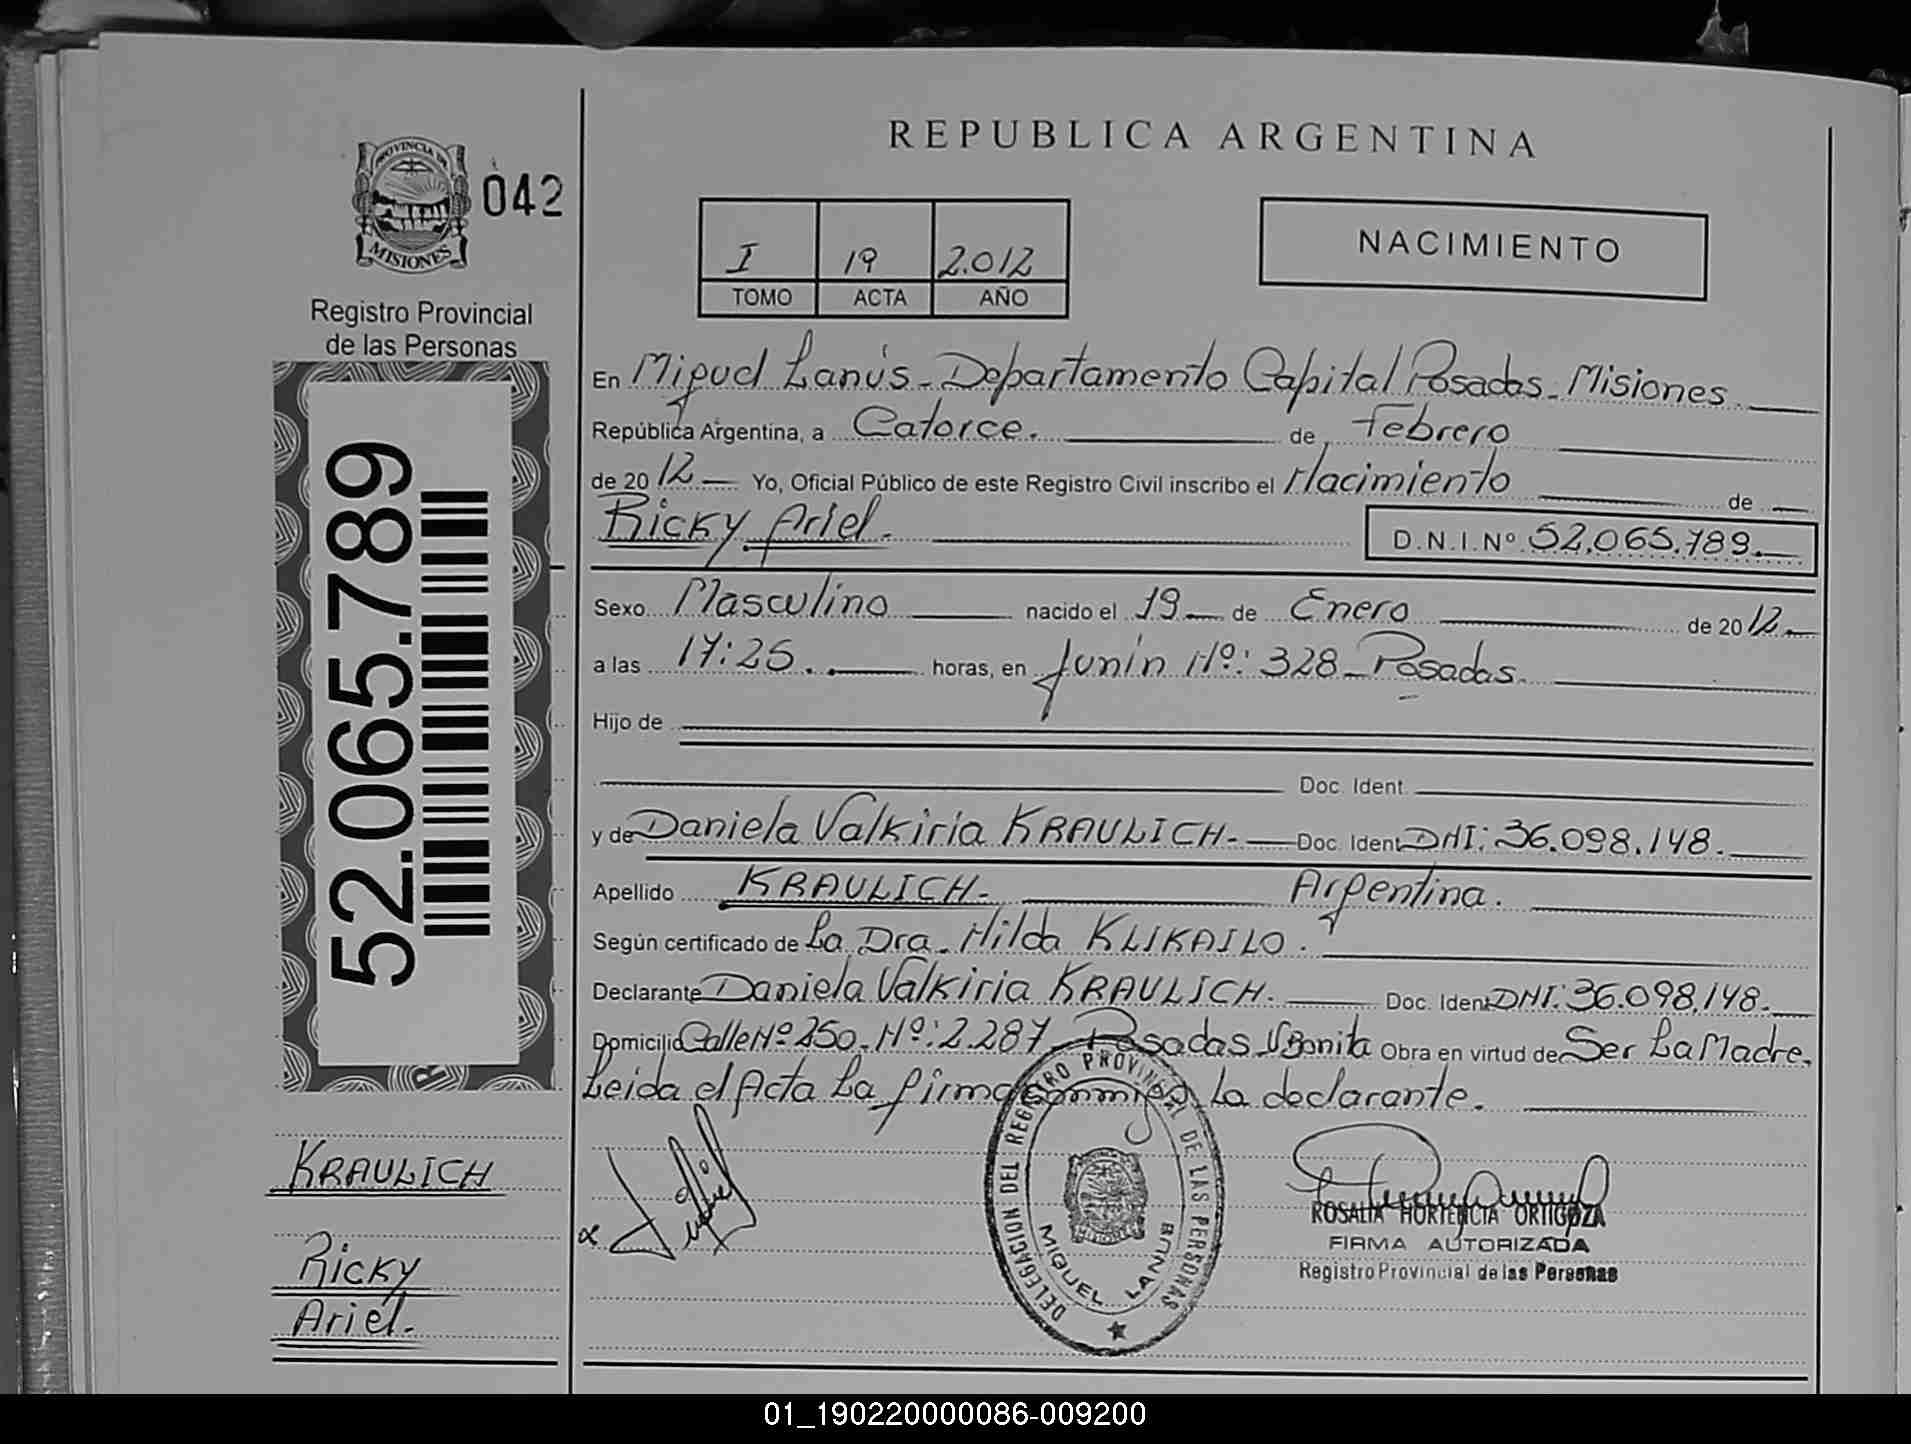 REPUBLICA ARGENTINA
PROVINCIA DE
MISIONES
042
Registro Provincial
de las Personas
I 19 2.012
TOMO ACTA AÑO
NACIMIENTO
En Miguel Lanús - Departamento Capital Posadas - Misiones
República Argentina, a Catorce. de Febrero
de 2012 Yo, Oficial Público de este Registro Civil inscribo el Nacimiento de
Ricky Ariel. D.N.I.Nº 52.065.789.
Sexo Masculino nacido el 19 de Enero de 2012
a las 17:25. horas, en Junín Nº: 328 - Posadas.
Hijo de
Doc. Ident.
y de Daniela Valkiria KRAULICH. Doc. Ident DNI: 36.098.148.
Apellido KRAULICH. Argentina.
Según certificado de La Dra. Hilda KLIKAILO.
Declarante Daniela Valkiria KRAULICH. Doc. Ident DNI: 36.098.148.
Domicilio Calle Nº 250. Nº: 2.287 - Posadas V Bonita Obra en virtud de Ser La Madre.
Leida el Acta La firma conmigo La declarante.
52.065.789
KRAULICH
Ricky
Ariel.
DELEGACION DEL REGISTRO PROVINCIAL DE LAS PERSONAS
MIGUEL LANUS
ROSALIA HORTENCIA ORTIGOZA
FIRMA AUTORIZADA
Registro Provincial de las Personas
01_190220000086-009200